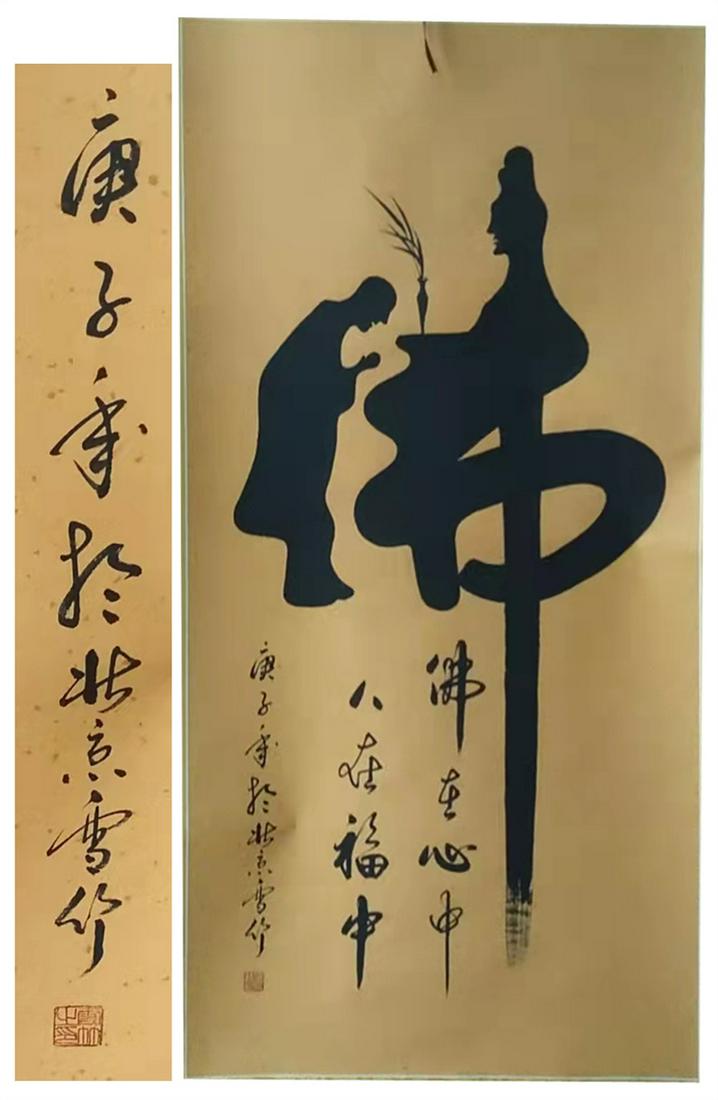 庚子年於北京雪竹
佛
佛在心中
人在福中
庚子年於北京雪竹